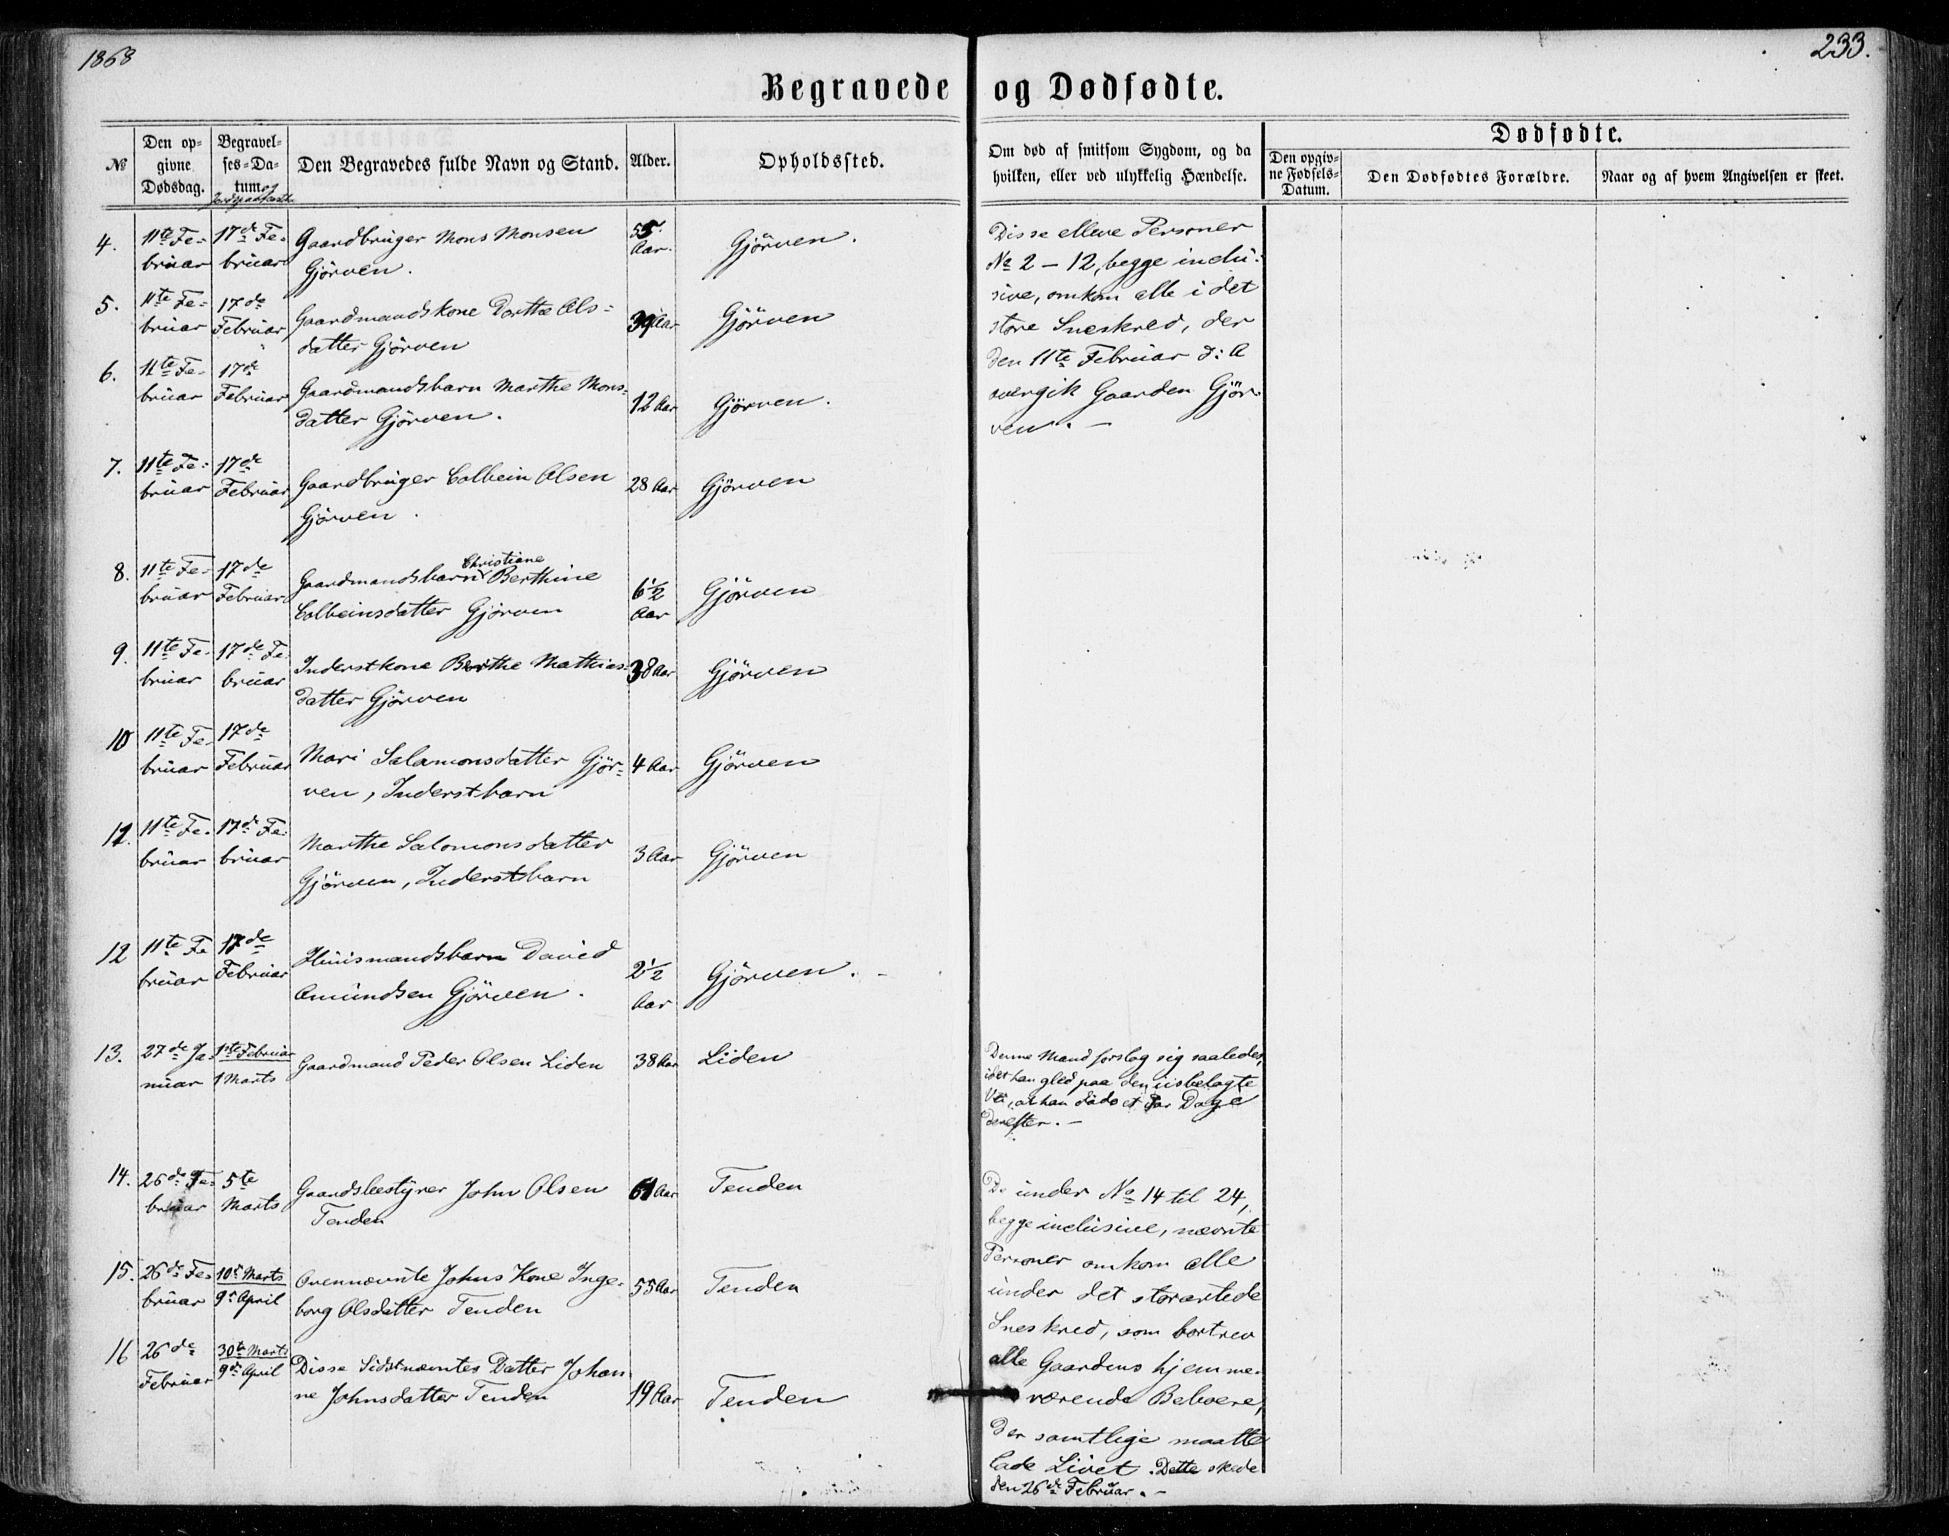 1868
233.
Begravede og Dødfødte.
№
Den op-
givne
Dødsdag.
Begravel-
ses-Da-
tum og
Jordpaakastelse
Den Begravedes fulde Navn og Stand.
Alder.
Opholdssted.
Om død af smitsom Sygdom, og da
hvilken, eller ved ulykkelig Hændelse.
Dødfødte.
Den opgiv-
ne Fødsels-
Datum.
Den Dødfødtes Forældre.
Naar og af hvem Angivelsen er skeet.
4. 11te Fe- 17de Fe- Gaardbruger Mons Monsen 55 Gjörven.
bruar bruar Gjörven. Aar.
5. 11te Fe- 17de Gaardmandskone Dorthe Ols- 39 Aar Gjörven
bruar Februar datter Gjörven
6. 11te Fe- 17de Gaardmandsbarn Marthe Mons- 12 Aar Gjörven.
bruar Februar datter Gjörven.
7. 11te Fe- 17de Gaardbruger Colbein Olsen 28 Aar Gjörven
bruar Februar Gjörven.
Christiane
8. 11te Fe- 17de Gaardmandsbarn Berthine 6½ Gjörven
bruar Februar Colbeinsdatter Gjörven Aar
9. 11te Fe- 17de Fe- Inderstkone Berthe Mathias- 38 Aar Gjörven
bruar bruar datter Gjörven
10 11te Fe- 17de Mari Salamonsdatter Gjör- 4 Aar Gjörven
bruar Februar ven, Inderstbarn
11. 11te Fe- 17de Fe- Marthe Salomonsdatter 3 Aar Gjörven
bruar bruar Gjörven, Inderstbarn
12 11te Fe 17de Huusmandsbarn David 2½ Gjörven.
bruar Februar Amundsen Gjörven. Aar
13. 27de Ja- 1ste Februar Gaardmand Peder Olsen Liden 38 Aar Liden
nuar 1 Marts
14. 26de Fe- 5te Gaardsbestyrer John Olsen 61 Aar Tenden
bruar Marts Tenden
15. 26de Fe- 10de Marts Ovennævnte Johns Kone Inge- 55 Aar Tenden
bruar 9de April borg Olsdatter Tenden
16 26de 30te Marts Disse Sidstnævntes Datter Johan- 19 Aar Tenden
Februar 9de April ne Johnsdatter Tenden
Disse elleve Personer
No 2 – 12, begge inclu-
sive, omkom alle i det
store Sneskred, der
den 11te Februar d: A
overgik Gaarden Gjör-
ven. –
Denne Mand forslog sig saaledes,
idet han gled paa den iisbelagte
Vei, at han døde et Par Dage
derefter. –
De under No 14 til 24,
begge inclusive, nævnte
Personer omkom alle
under det storartede
Sneskred, som bortrev
alle Gaardens hjemme-
værende Beboere,
der samtlige maatte
lade Livet. Dette skede
den 26de Februar. –